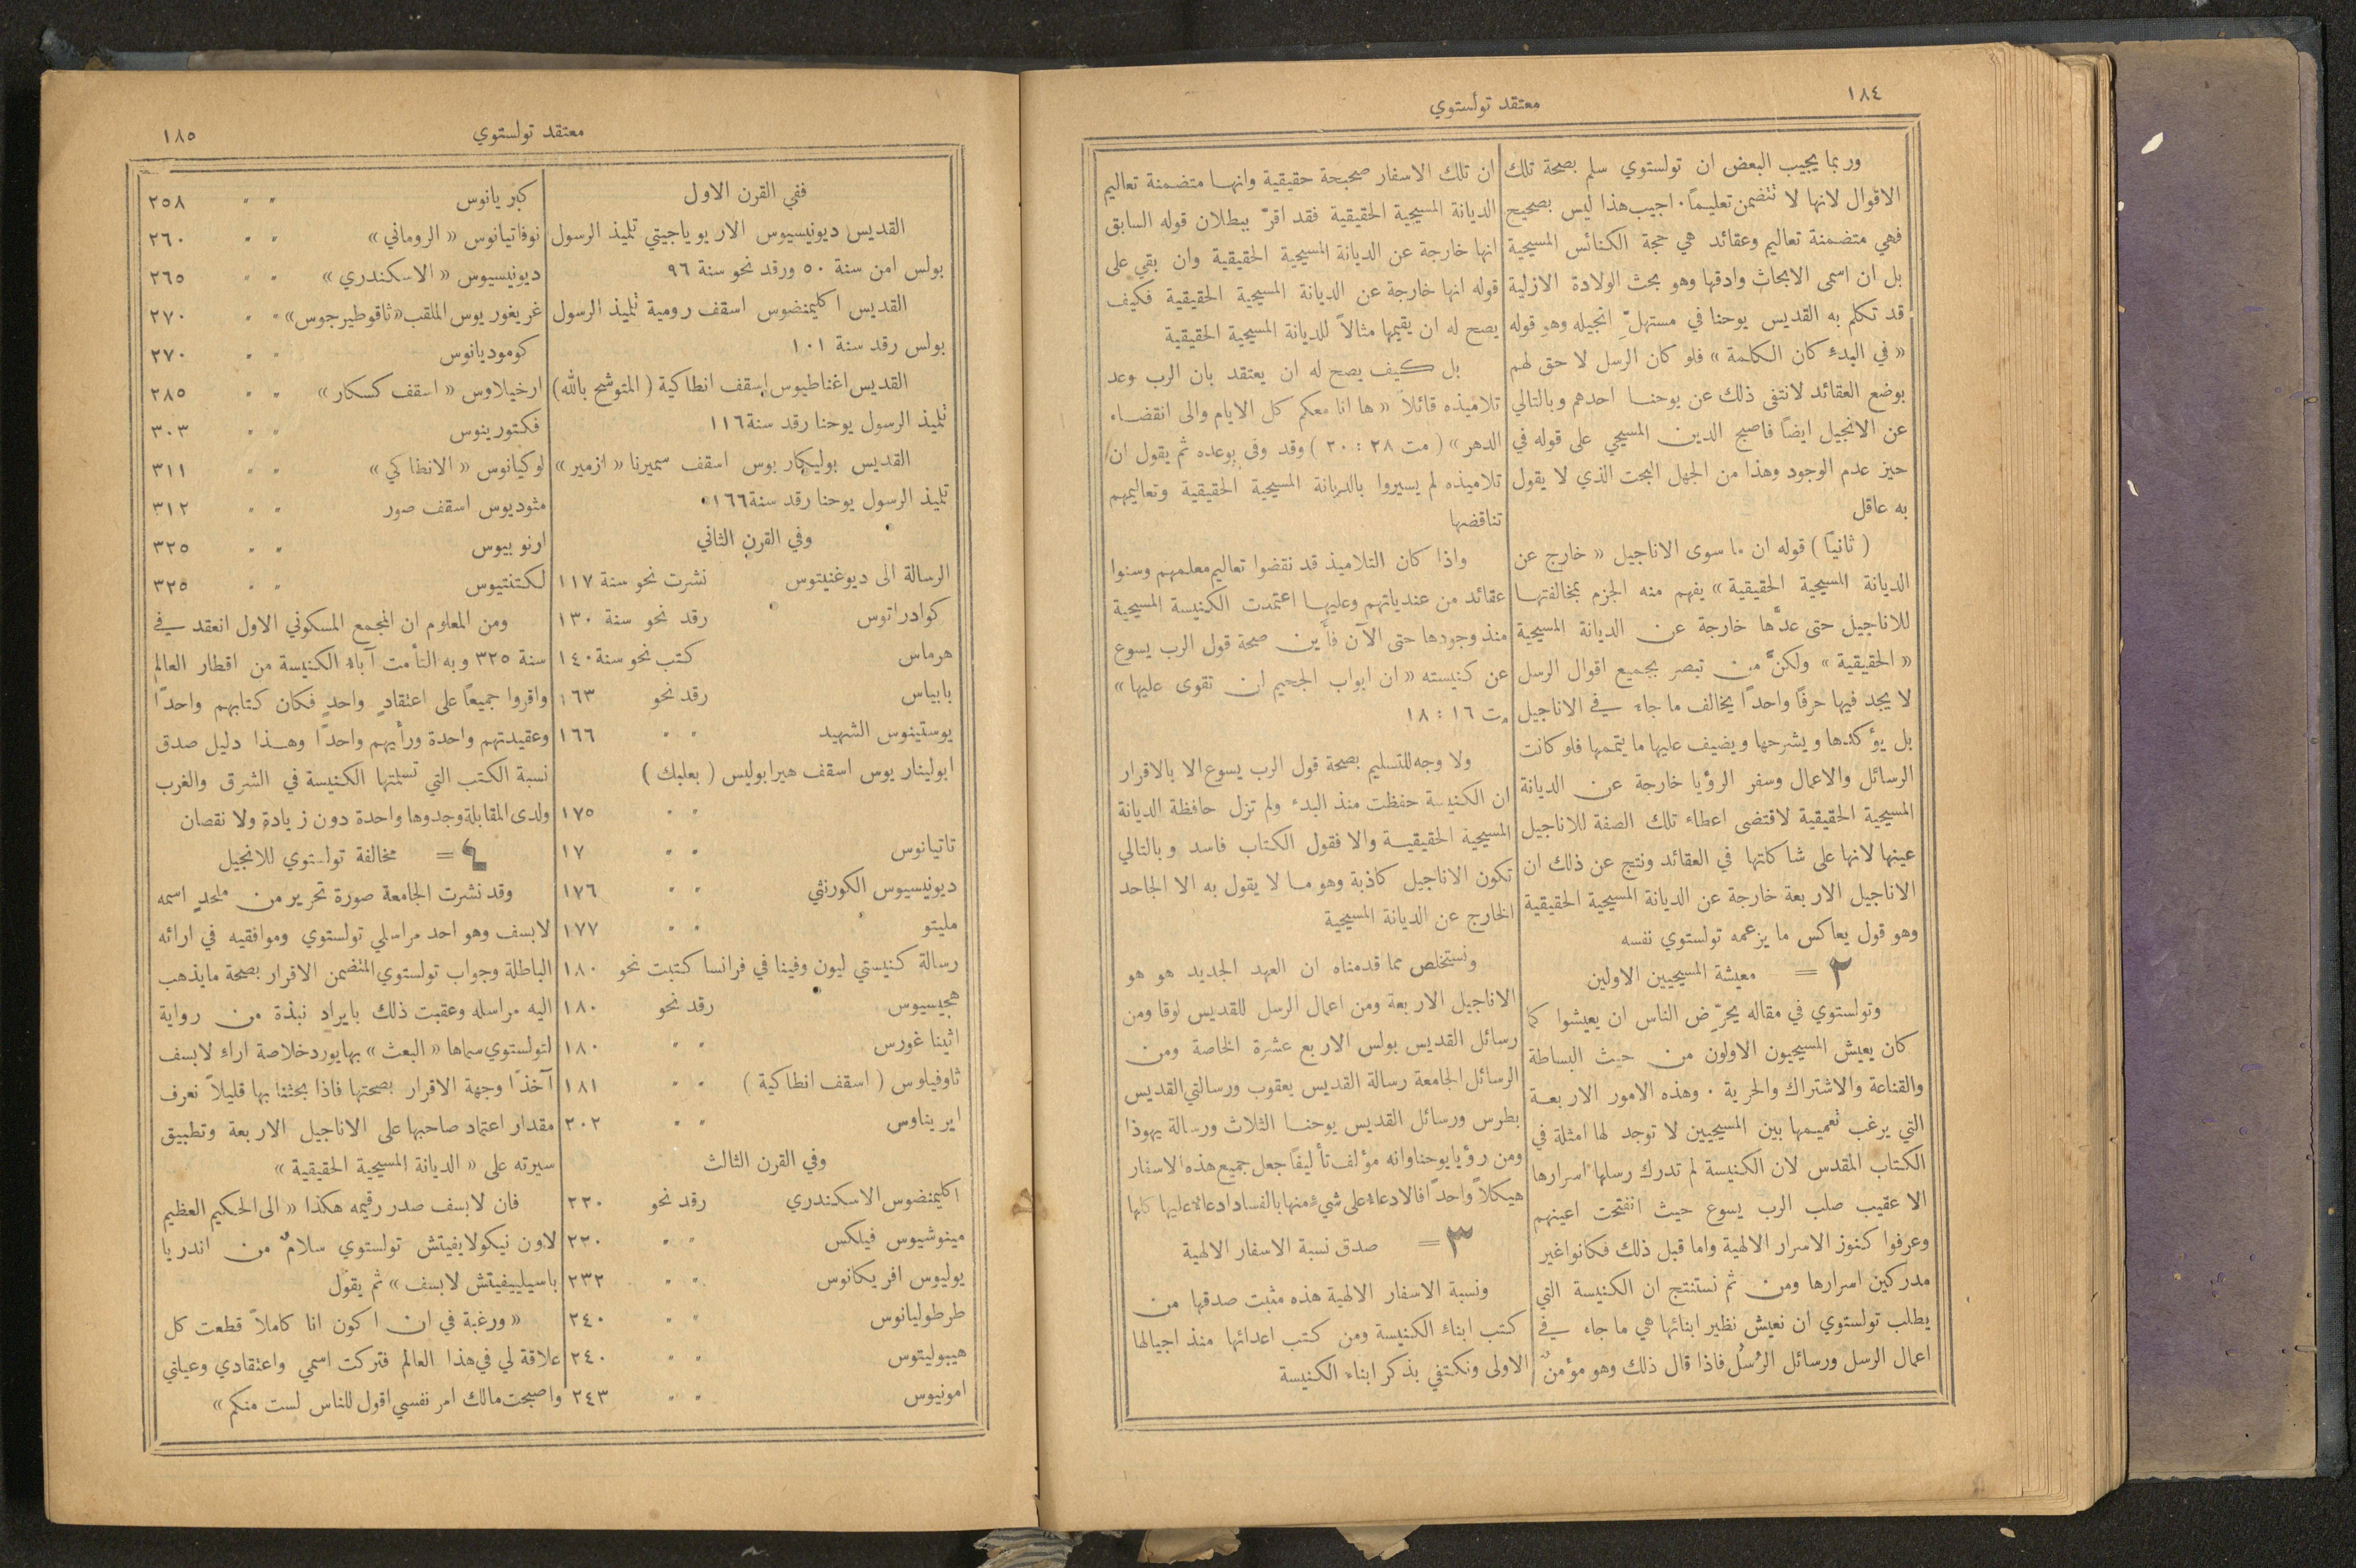 ١٨٤
معتقد تولستوي
وربما يجيب البعض ان تولستوي سلم بصحة تلك
الاقوال لانها لا تتضمن تعليماً. اجيب هذا ليس بصحيح
فهي متضمنة تعاليم وعقائد هي حجة الكنائس المسيحية
بل ان اسمى الابحاث وادقها وهو بحث الولادة الازلية
قد تكلم به القديس يوحنا في مستهلّ انجيله وهو قوله
« في البدء كان الكلمة » فلو كان الرسل لا حق لهم
بوضع العقائد لانتفى ذلك عن يوحنا احدهم وبالتالي
عن الانجيل ايضاً فاصبح الدين المسيحي على قوله في
حيز عدم الوجود وهذا من الجهل البحت الذي لا يقول
به عاقل
( ثانياً ) قوله ان ما سوى الاناجيل « خارج عن
الديانة المسيحية الحقيقية » يفهم منه الجزم بمخالفتها
للاناجيل حتى عدَّها خارجة عن الديانة المسيحية
« الحقيقية » ولكنَّ من تبصر بجميع اقوال الرسل
لا يجد فيها حرفاً واحداً يخالف ما جاء في الاناجيل
بل يؤكدها ويشرحها ويضيف عليها ما يتممها فلو كانت
الرسائل والاعمال وسفر الرؤيا خارجة عن الديانة
المسيحية الحقيقية لاقتضى اعطاء تلك الصفة للاناجيل
عينها لانها على شاكلتها في العقائد ونتج عن ذلك ان
الاناجيل الاربعة خارجة عن الديانة المسيحية الحقيقية
وهو قول يعاكس ما يزعمه تولستوي نفسه
٢ = معيشة المسيحيين الاولين
وتولستوي في مقاله يحرّض الناس ان يعيشوا كما
كان يعيش المسيحيون الاولون من حيث البساطة
والقناعة والاشتراك والحرية . وهذه الامور الاربعة
التي يرغب تعميمها بين المسيحيين لا توجد لها امثلة في
الكتاب المقدس لان الكنيسة لم تدرك رسلها اسرارها
الا عقيب صلب الرب يسوع حيث انفتحت اعينهم
وعرفوا كنوز الاسرار الالهية واما قبل ذلك فكانوا غير
مدركين اسرارها ومن ثم نستنتج ان الكنيسة التي
يطلب تولستوي ان نعيش نظير ابنائها هي ما جاء في
اعمال الرسل ورسائل الرُسُل فاذا قال ذلك وهو مؤمنٌ
ان تلك الاسفار صحيحة حقيقية وانها متضمنة تعاليم
الديانة المسيحية الحقيقية فقد اقرّ ببطلان قوله السابق
انها خارجة عن الديانة المسيحية الحقيقية وان بقي على
قوله انها خارجة عن الديانة المسيحية الحقيقية فكيف
يصح له ان يقيمها مثالاً للديانة المسيحية الحقيقية
بل كيف يصح له ان يعتقد بان الرب وعد
تلاميذه قائلاً « ها انا معكم كل الايام والى انقضاء
الدهر » ( مت ٢٨ : ٢٠ ) وقد وفى بوعده ثم يقول ان
تلاميذه لم يسيروا بالديانة المسيحية الحقيقية وتعاليمهم
تناقضها
واذا كان التلاميذ قد نقضوا تعاليم معلمهم وسنوا
عقائد من عندياتهم وعليها اعتمدت الكنيسة المسيحية
منذ وجودها حتى الآن فأين صحة قول الرب يسوع
عن كنيسته « ان ابواب الجحيم لن تقوى عليها »
مت ١٦ : ١٨
ولا وجه للتسليم بصحة قول الرب يسوع الا بالاقرار
ان الكنيسة حفظت منذ البدء ولم تزل حافظة الديانة
المسيحية الحقيقية والا فقول الكتاب فاسد وبالتالي
تكون الاناجيل كاذبة وهو ما لا يقول به الا الجاحد
الخارج عن الديانة المسيحية
ونستخلص مما قدمناه ان العهد الجديد هو هو
الاناجيل الاربعة ومن اعمال الرسل للقديس لوقا ومن
رسائل القديس بولس الاربع عشرة الخاصة ومن
الرسائل الجامعة رسالة القديس يعقوب ورسالتي القديس
بطرس ورسائل القديس يوحنا الثلاث ورسالة يهوذا
ومن رؤيا يوحنا وانه مؤلف تأليفاً جعل جميع هذه الاسفار
هيكلاً واحداً فالادعاء على شيء منها بالفساد ادعاء عليها كلها
٣ = صدق نسبة الاسفار الالهية
ونسبة الاسفار الالهية هذه مثبت صدقها من
كتب ابناء الكنيسة ومن كتب اعدائها منذ اجيالها
الاولى ونكتفي بذكر ابناء الكنيسة
معتقد تولستوي
١٨٥
ففي القرن الاول
القديس ديونيسيوس الاريوباجيتي تلميذ الرسول
بولس امن سنة ٥٠ ورقد نحو سنة ٩٦
القديس اكليمنضوس اسقف رومية تلميذ الرسول
بولس رقد سنة ١٠١
القديس اغناطيوس اسقف انطاكية ( المتوشح بالله )
تلميذ الرسول يوحنا رقد سنة ١١٦
القديس بوليكاربوس اسقف سميرنا « ازمير »
تلميذ الرسول يوحنا رقد سنة ١٦٦
وفي القرن الثاني
الرسالة الى ديوغنيتوس نشرت نحو سنة ١١٧
كوادراتوس رقد نحو سنة ١٣٠
هرماس كتب نحو سنة ١٤٠
بابياس رقد نحو ١٦٣
يوستينوس الشهيد " " ١٦٦
ابوليناريوس اسقف هيرابوليس ( بعلبك )
" " ١٧٥
تاتيانوس " " ١٧
ديونيسيوس الكورنثي " " ١٧٦
مليتو " " ١٧٧
رسالة كنيستي ليون وفينا في فرانسا كتبت نحو ١٨٠
هجيسيوس رقد نحو ١٨٠
اثيناغورس " " ١٨٠
ثاوفيلوس ( اسقف انطاكية ) " " ١٨١
ايريناوس " " ٢٠٢
وفي القرن الثالث
اكليمنضوس الاسكندري رقد نحو ٢٢٠
مينوشيوس فيلكس " " ٢٢٠
يوليوس افريكانوس " " ٢٣٢
طرطوليانوس " " ٢٤٠
هيبوليتوس " " ٢٤٠
امونيوس " " ٢٤٣
كبريانوس " " ٢٥٨
نوفاتيانوس « الروماني » " " ٢٦٠
ديونيسيوس « الاسكندري » " " ٢٦٥
غريغوريوس الملقب « ثاقوطيرجوس » " " ٢٧٠
كوموديانوس " " ٢٧٠
ارخيلاوس « اسقف كسكار » " " ٢٨٥
فكتورينوس " " ٣٠٣
لوكيانوس « الانطاكي » " " ٣١١
مثوديوس اسقف صور " " ٣١٢
ارنوبيوس " " ٣٢٥
لكتنتيوس " " ٣٢٥
ومن المعلوم ان المجمع المسكوني الاول انعقد في
سنة ٣٢٥ وبه التأمت آباء الكنيسة من اقطار العالم
واقروا جميعاً على اعتقادٍ واحدٍ فكان كتابهم واحداً
وعقيدتهم واحدة ورأيهم واحداً وهذا دليل صدق
نسبة الكتب التي تسلمتها الكنيسة في الشرق والغرب
ولدى المقابلة وجدوها واحدة دون زيادة ولا نقصان
٤ = مخالفة تولستوي للانجيل
وقد نشرت الجامعة صورة تحرير من ملحدٍ اسمه
لابسف وهو احد مراسلي تولستوي وموافقيه في ارائه
الباطلة وجواب تولستوي المتضمن الاقرار بصحة ما يذهب
اليه مراسله وعقبت ذلك بايراد نبذة من رواية
لتولستوي سماها « البعث » بها يورد خلاصة اراء لابسف
آخذاً وجهة الاقرار بصحتها فاذا بحثنا بها قليلاً نعرف
مقدار اعتماد صاحبها على الاناجيل الاربعة وتطبيق
سيرته على « الديانة المسيحية الحقيقية »
فان لابسف صدر رقيمه هكذا « الى الحكيم العظيم
لاون نيكولايفيتش تولستوي سلامٌ من اندريا
باسيلييفيتش لابسف » ثم يقول
« ورغبة في ان اكون انا كاملاً قطعت كل
علاقة لي في هذا العالم فتركت اسمي واعتقادي وعيلتي
واصبحت مالك امر نفسي اقول للناس لست منكم »